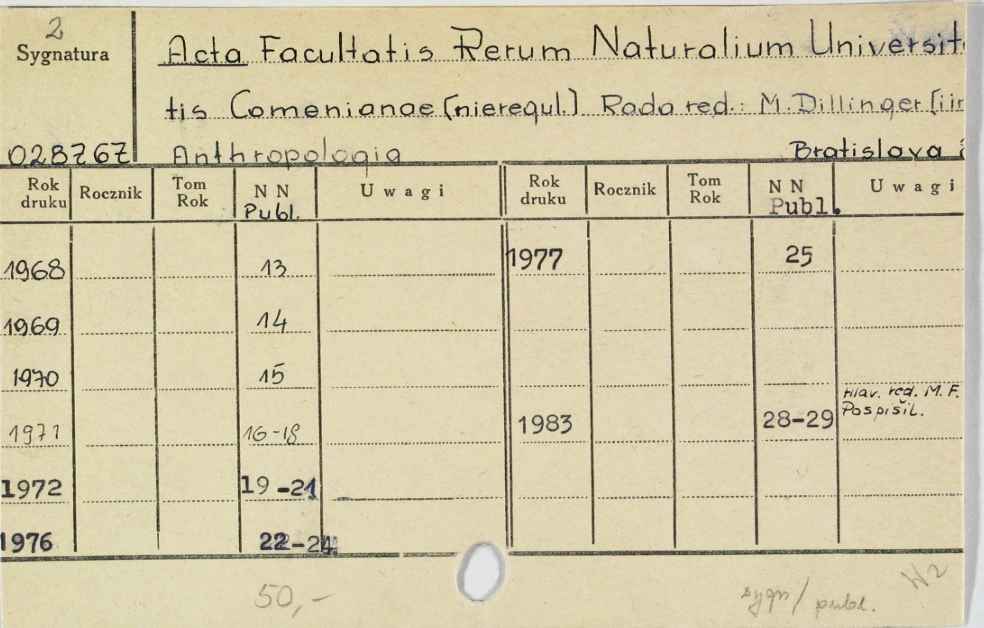 2
Sygnatura
Acta Facultatis Rerum Naturalium Universit
tis Comenianae (nieregul.) Rada red.: M. Dillinger
028767 Anthropologia Bratislava
Rok druku Rocznik Tom Rok NN Publ. Uwagi Rok druku Rocznik Tom Rok NN Publ. Uwagi
1968 13 1977 25
1969 14
1970 15
Hlav. red. M. F.
1971 16-18 1983 28-29 Pospišil.
1972 19-21
1976 22-24
50,- sygn/ publ. W2